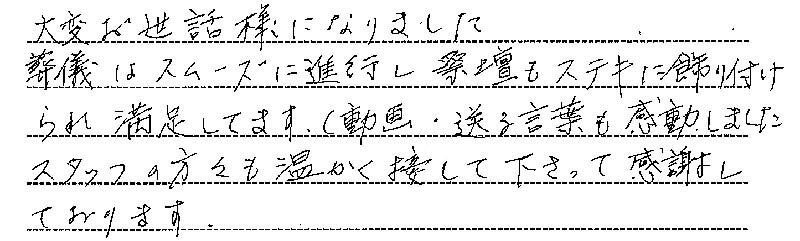 大変お世話様になりました
葬儀はスムーズに進行し祭壇もステキに飾り付け
られ満足してます。(動画・送る言葉も感動しました
スタッフの方々も温かく接して下さって感謝し
ております.